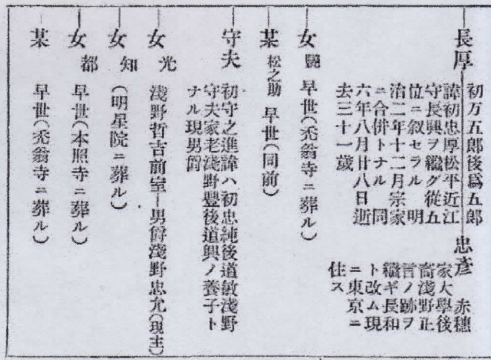 長厚
初万五郎後爲五郎
諱初忠厚松平近江
守長興ヲ繼グ從五
位ニ叙セラル 明
治二年十二月宗家
ニ合併トナル 同
六年八月廿八日逝
去三十一歲
忠彥
赤穗
家大學後
裔淺野正
言ノ跡ヲ
繼ギ長和
ト改ム現
ニ東京ニ
住ス
女
早世(禿翁寺ニ葬ル)
某 松之助 早世(同前)
守夫
初守之進諱ハ初忠純後道敏淺野
守夫家老淺野豐後道興ノ養子ト
ナル現男爵
女 光
淺野哲吉前室―男爵淺野忠允(現主)
女 知
(明星院ニ葬ル)
女 都
早世(本照寺ニ葬ル)
某
早世(禿翁寺ニ葬ル)